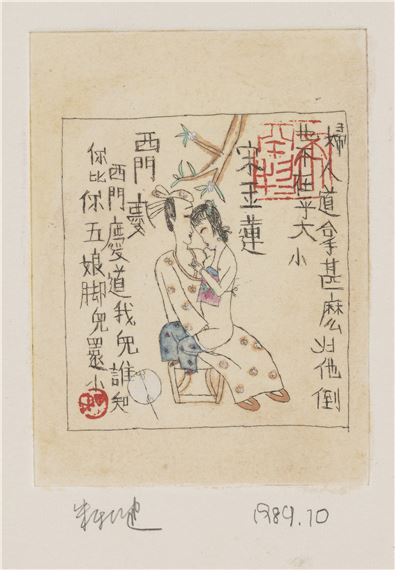 婦人道拿甚麽比他倒
也不在乎大小
宋玉蓮
西門慶
西門慶道我兒誰知
你比你五娘脚兒還小
1989.10